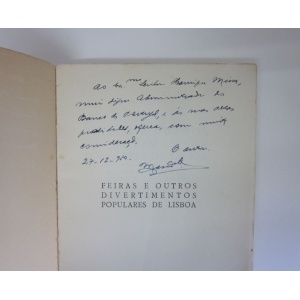 Ao Ex.mo Senhor Henrique
mui digno Administrador do
Banco de Portugal, e às suas
oferece, com muita
consideração.
O autor
27-12-
FEIRAS E OUTROS
DIVERTIMENTOS
POPULARES DE LISBOA